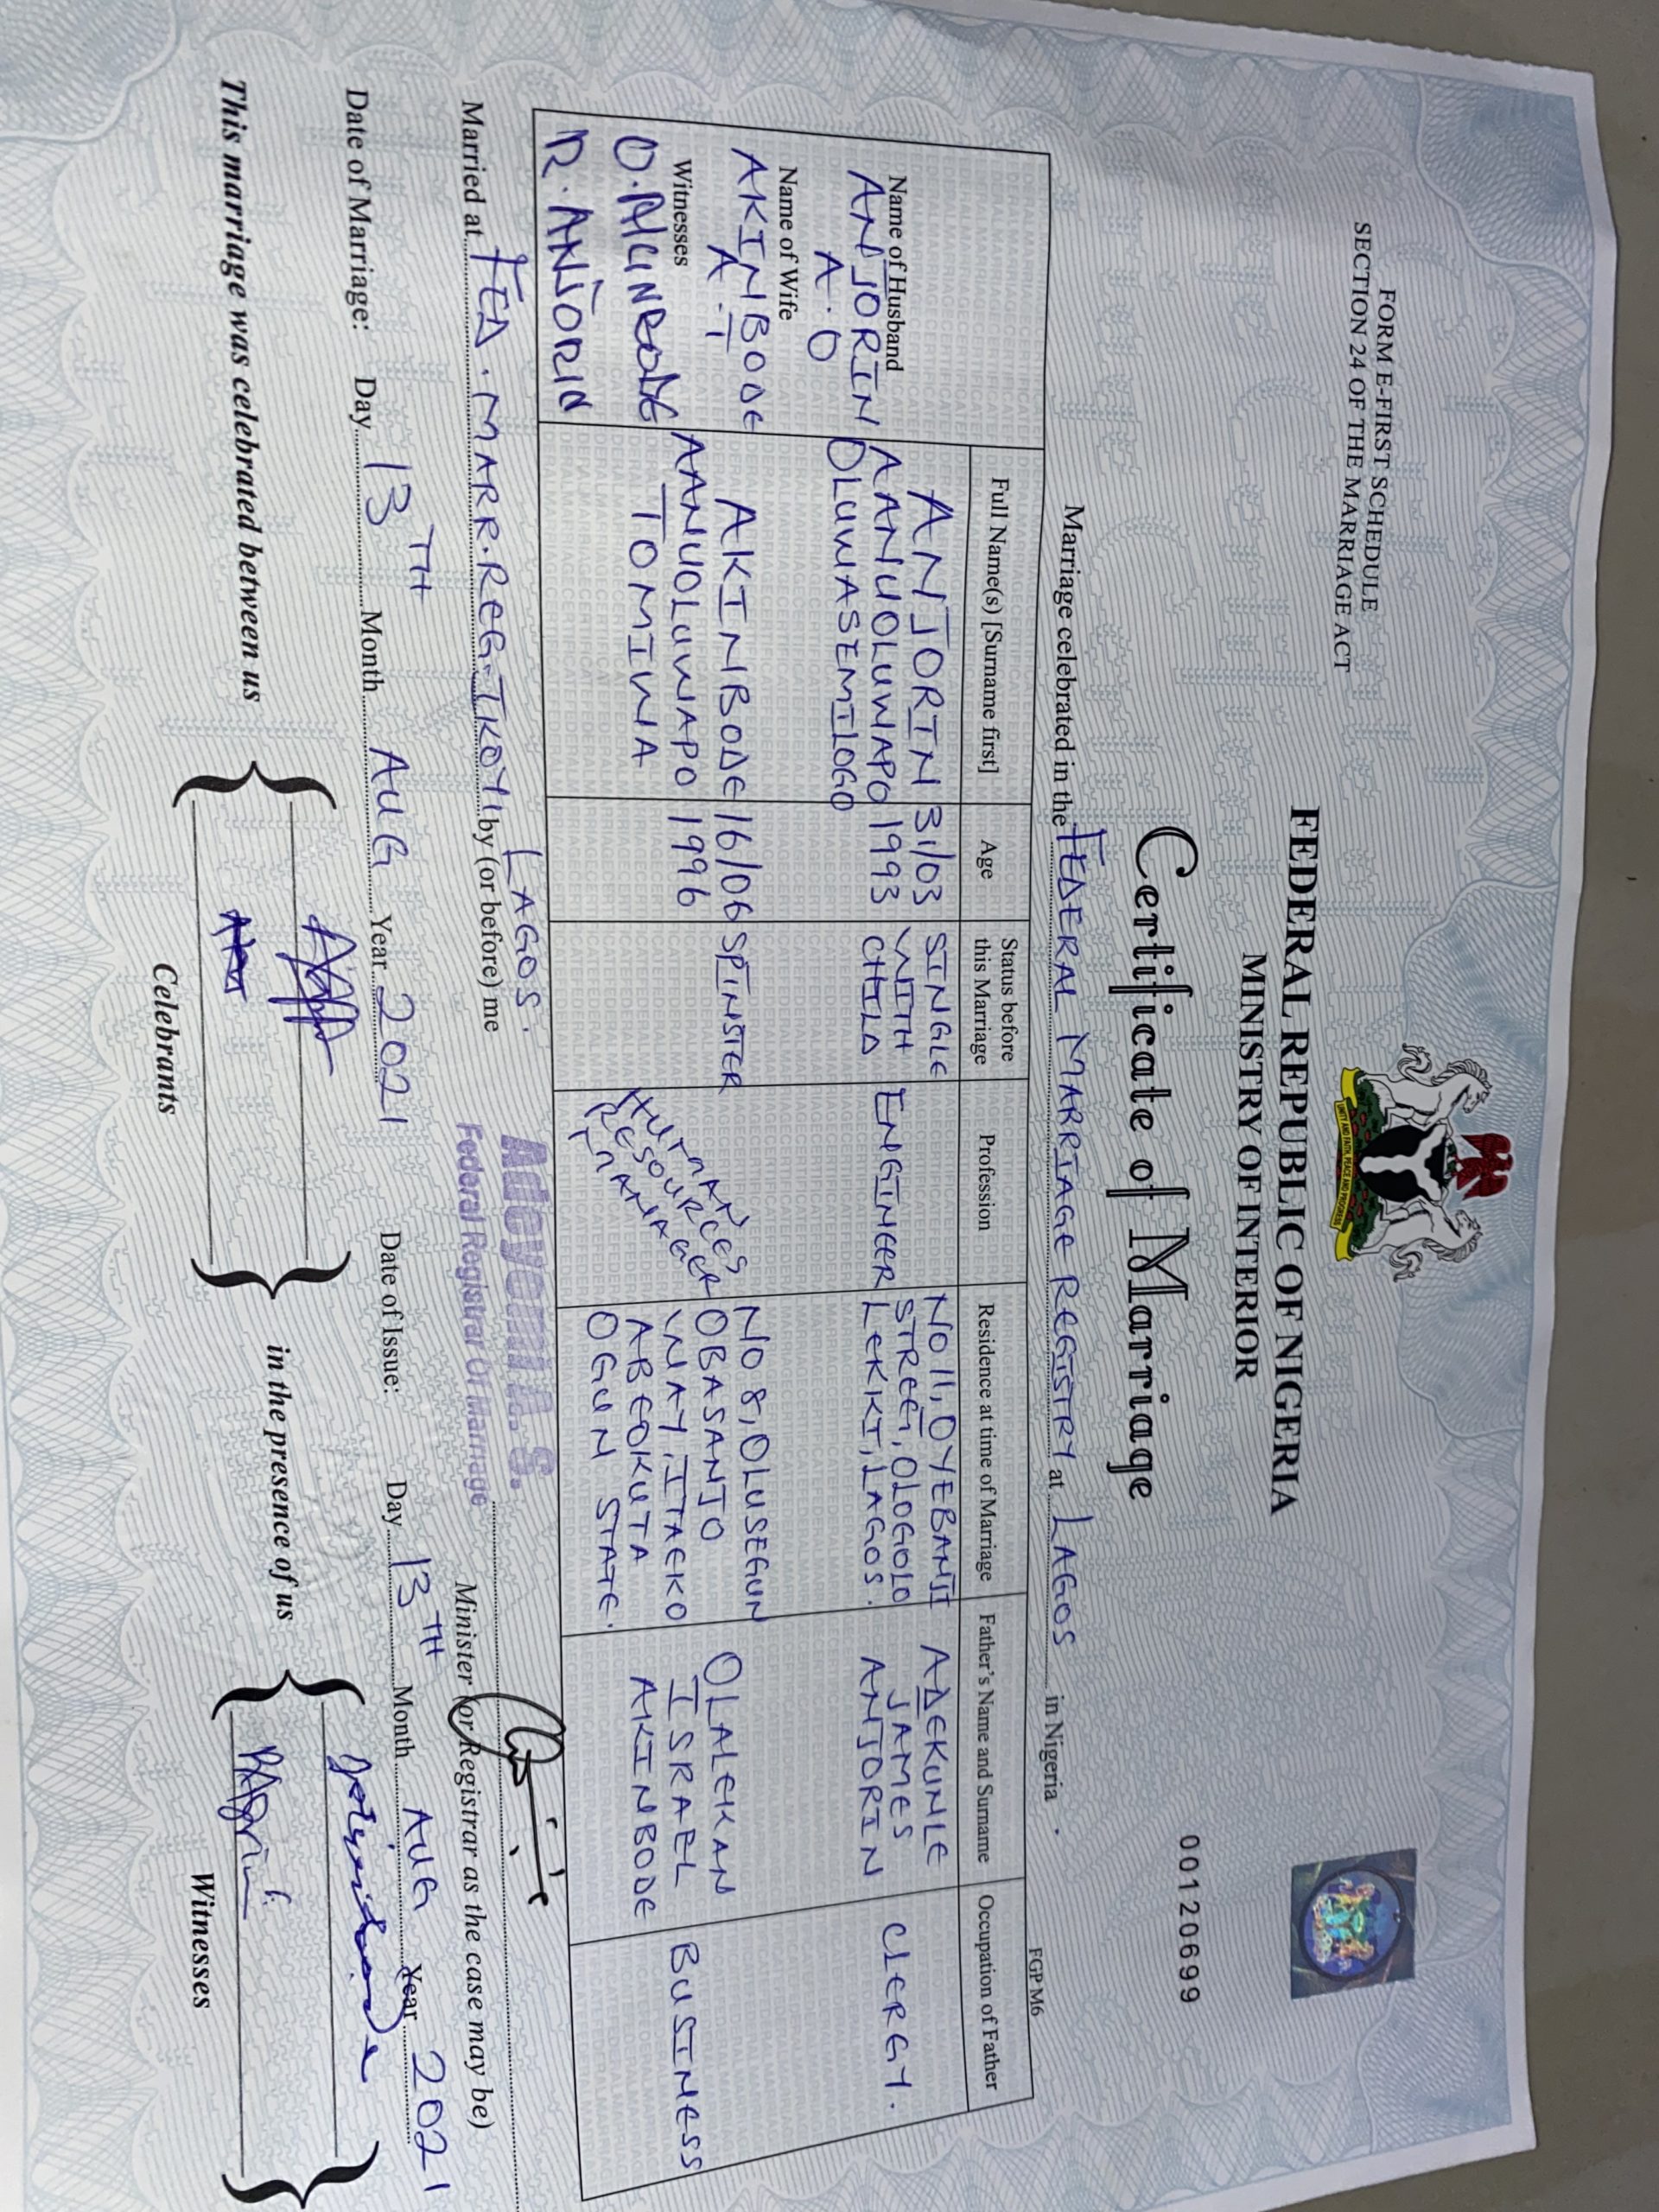 FORM E-FIRST SCHEDULE
SECTION 24 OF THE MARRIAGE ACT
UNITY AND FAITH, PEACE AND PROGRESS
FEDERAL REPUBLIC OF NIGERIA
MINISTRY OF INTERIOR
00120699
Certificate of Marriage
Marriage celebrated in the FEDERAL MARRIAGE REGISTRY at LAGOS in Nigeria
FGP M6
Full Name(s) [Surname first]
Age
Status before
this Marriage
Profession
Residence at time of Marriage
Father's Name and Surname
Occupation of Father
Name of Husband
ANJORIN
A.O
ANJORIN
AANUOLUWAPO
OLUWASEMILOGO
31/03
1993
SINGLE
WITH
CHILD
ENGINEER
NO 11, OYEBANJI
STREET, OLOGOLO
LEKKI, LAGOS.
ADEKUNLE
JAMES
ANJORIN
CLERGY.
Name of Wife
AKINBODE
A.T
AKINBODE
AANUOLUWAPO
TOMIWA
16/06
1996
SPINSTER
HUMAN
RESOURCES
MANAGER
NO 8, OLUSEGUN
OBASANJO
WAY, ITAEKO
ABEOKUTA
OGUN STATE.
OLALEKAN
ISRAEL
AKINBODE
BUSINESS
Witnesses
O. AKINBODE
R. ANJORIN
Married at FED. MARR. REG. IKOYI LAGOS. by (or before) me
Adeyemi
Federal Registrar Of Marriage
Minister (or Registrar as the case may be)
Date of Marriage: Day 13TH Month AUG Year 2021 Date of Issue: Day 13TH Month AUG Year 2021
This marriage was celebrated between us
in the presence of us
Celebrants
Witnesses